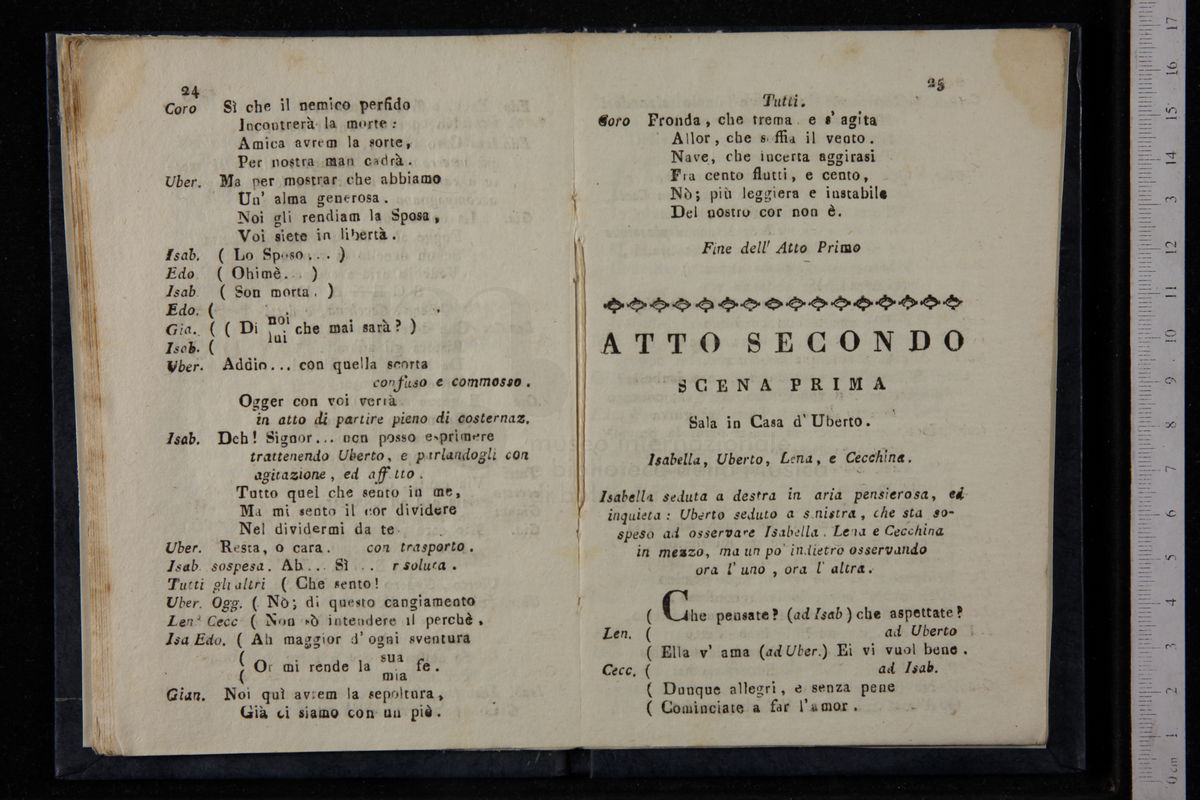 24
Coro Sì che il nemico perfido
Incontrerà la morte:
Amica avrem la sorte,
Per nostra man cadrà.
Uber. Ma per mostrar che abbiamo
Un' alma generosa.
Noi gli rendiam la Sposa,
Voi siete in libertà.
Isab. ( Lo Sposo... )
Edo ( Ohimè... )
Isab ( Son morta. )
Edo. (
Gia. ( ( Di noi lui che mai sarà? )
Isab. (
Uber. Addio... con quella scorta
confuso e commosso.
Ogger con voi verrà
in atto di partire pieno di costernaz.
Isab. Deh! Signor... non posso esprimere
trattenendo Uberto, e parlandogli con
agitazione, ed affetto.
Tutto quel che sento in me,
Ma mi sento il cor dividere
Nel dividermi da te
Uber. Resta, o cara. con trasporto.
Isab sospesa. Ah... Sì... rsoluta.
Tutti gli altri ( Che sento!
Uber. Ogg. ( Nò; di questo cangiamento
Len. Cecc ( Non sò intendere il perchè.
Isa Edo. ( Ah maggior d'ogni sventura
( ( Or mi rende la sua mia fe.
Gian. Noi quì avrem la sepoltura,
Già ci siamo con un piè.
25
Tutti.
Coro Fronda, che trema e s'agita
Allor, che soffia il vento.
Nave, che incerta aggirasi
Fra cento flutti, e cento,
Nò; più leggiera e instabile
Del nostro cor non è.
Fine dell' Atto Primo
ATTO SECONDO
SCENA PRIMA
Sala in Casa d'Uberto.
Isabella, Uberto, Lena, e Cecchina.
Isabella seduta a destra in aria pensierosa, ed
inquieta: Uberto seduto a sinistra, che sta so-
speso ad osservare Isabella. Lena e Cecchina
in mezzo, ma un po' indietro osservando
ora l'uno, ora l'altra.
( Che pensate? (ad Isab) che aspettate?
Len. ( ad Uberto
( Ella v'ama (ad Uber.) Ei vi vuol bene.
Cecc. ( ad Isab.
( Dunque allegri, e senza pene
( Cominciate a far l'amor.